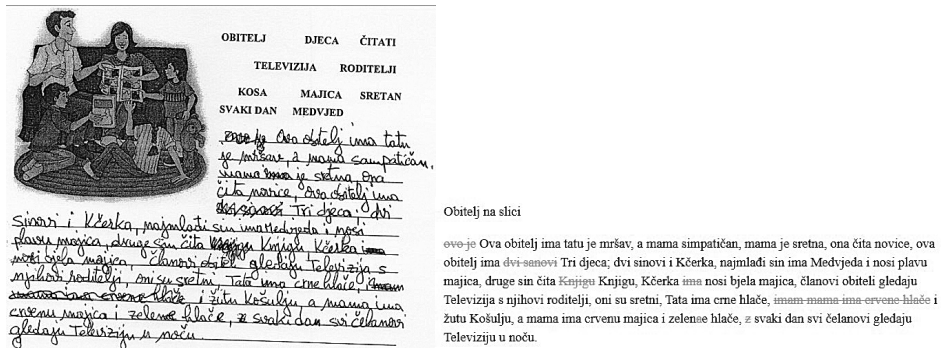 OBITELJ DJECA ČITATI
TELEVIZIJA RODITELJI
KOSA MAJICA SRETAN
SVAKI DAN MEDVJED
ovo je Ova obitelj ima tatu
je mršav, a mama simpatičan,
mama ima je sretna, ona
čita novice, ova obitelj ima
dvi sanovi Tri djeca; dvi
sinovi i Kčerka, najmlađi sin ima Medvjeda i nosi
plavu majica, druge sin čita Knjigu Knjigu, Kčerka ima
nosi bjela majica, članovi obiteli gledaju Televizija s
njihovi roditelji, oni su sretni, Tata ima crne hlače, imam
mama ima crvene hlače i žutu Košulju, a mama ima
crvenu majica i zelene hlače, z svaki dan svi čelanovi
gledaju Televiziju u noču.
Obitelj na slici
ovo je Ova obitelj ima tatu je mršav, a mama simpatičan, mama je sretna, ona čita novice, ova
obitelj ima dvi sanovi Tri djeca; dvi sinovi i Kčerka, najmlađi sin ima Medvjeda i nosi plavu
majica, druge sin čita Knjigu Knjigu, Kčerka ima nosi bjela majica, članovi obiteli gledaju
Televizija s njihovi roditelji, oni su sretni, Tata ima crne hlače, imam mama ima crvene hlače i
žutu Košulju, a mama ima crvenu majica i zelenae hlače, z svaki dan svi čelanovi gledaju
Televiziju u noču.